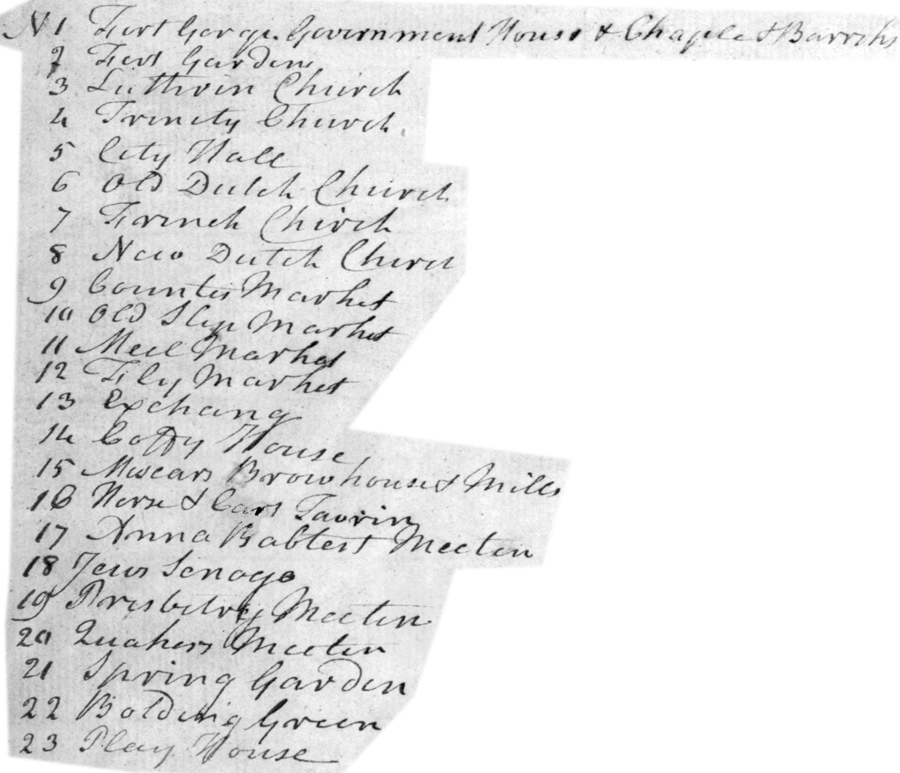 N 1 Fort Gorge Government House & Chaple & Barriks
2 Fort Garden
3 Luthrin Church
4 Trinety Church
5 City Hall
6 Old Dutch Church
7 French Chirch
8 New Dutch Church
9 Counties Market
10 Old Slip Market
11 Meel Market
12 Fly Market
13 Exchang
14 Coffy House
15 Browhouse & Mills
16 Horse & Cart Tavrin
17 Anna Babtest Meeten
18 Jews Senoge
19 Presbetry Meeten
20 Quakers Meeten
21 Spring Garden
22 Green
23 Play House